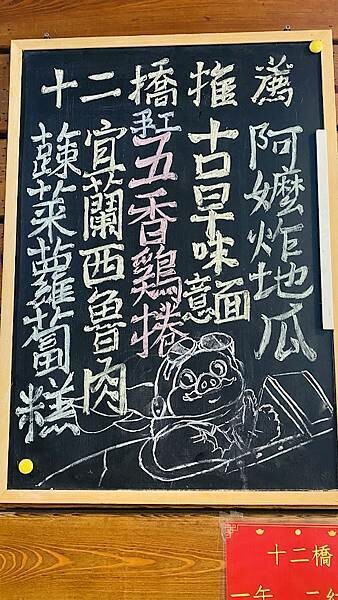 十二橋推薦
阿嬤炸地瓜
古早味意面
紅五香鶏捲
宜蘭西魯肉
蔬菜蘿蔔糕
十二橋